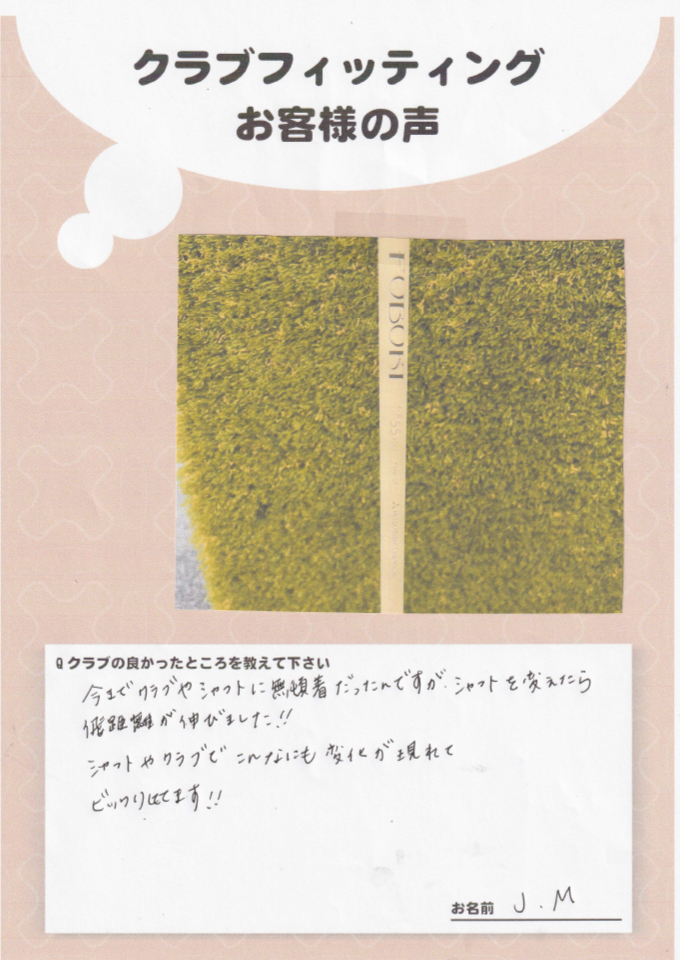 クラブフィッティング
お客様の声
FUBUKI
Q クラブの良かったところを教えて下さい
今までクラブやシャフトに無頓着だったんですが、シャフトを変えたら
飛距離が伸びました!!
シャフトやクラブでこんなにも変化が現れて
ビックリしてます!!
お名前 J.M